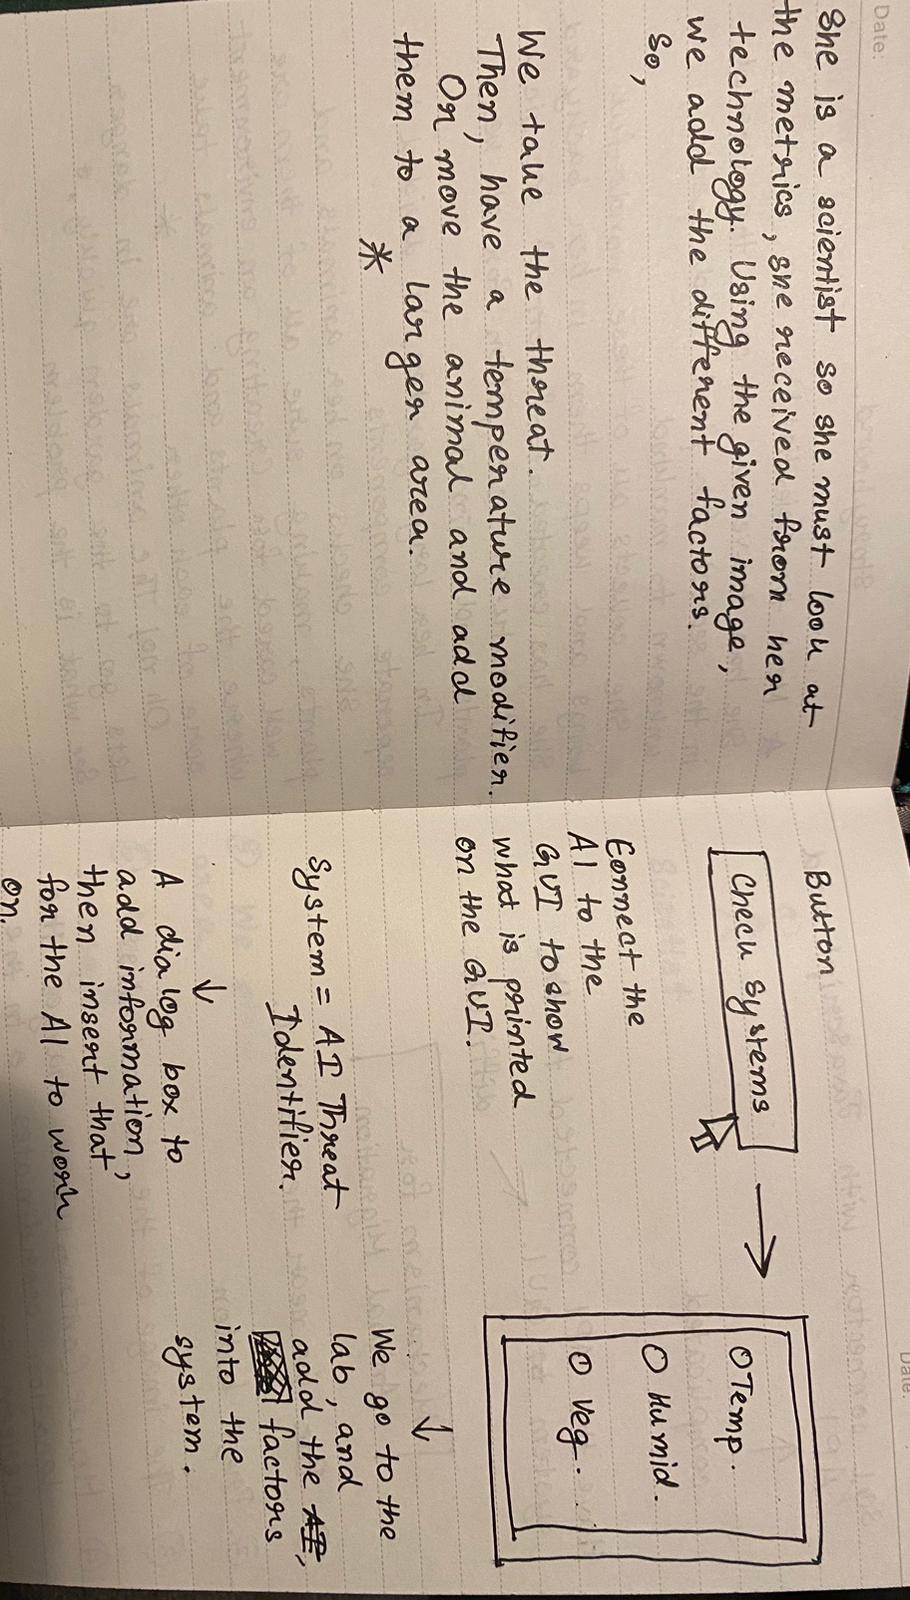 Date:
She is a scientist so she must look at
the metrics, she received from her
technology. Using the given image,
we add the different factors.
So,
We take the threat.
Then, have a temperature modifier.
Or move the animal and add
them to a larger area.
*
Date
Button
Check Systems
→
O Temp.
O Humid.
O Veg.
Connect the
AI to the
GUI to show
what is printed
on the GUI.
System = AI Threat
Identifier.
↓
A dialog box to
add information,
then insert that
for the AI to work
on.
↓
We go to the
lab, and
add the AI,
factors
into the
system.